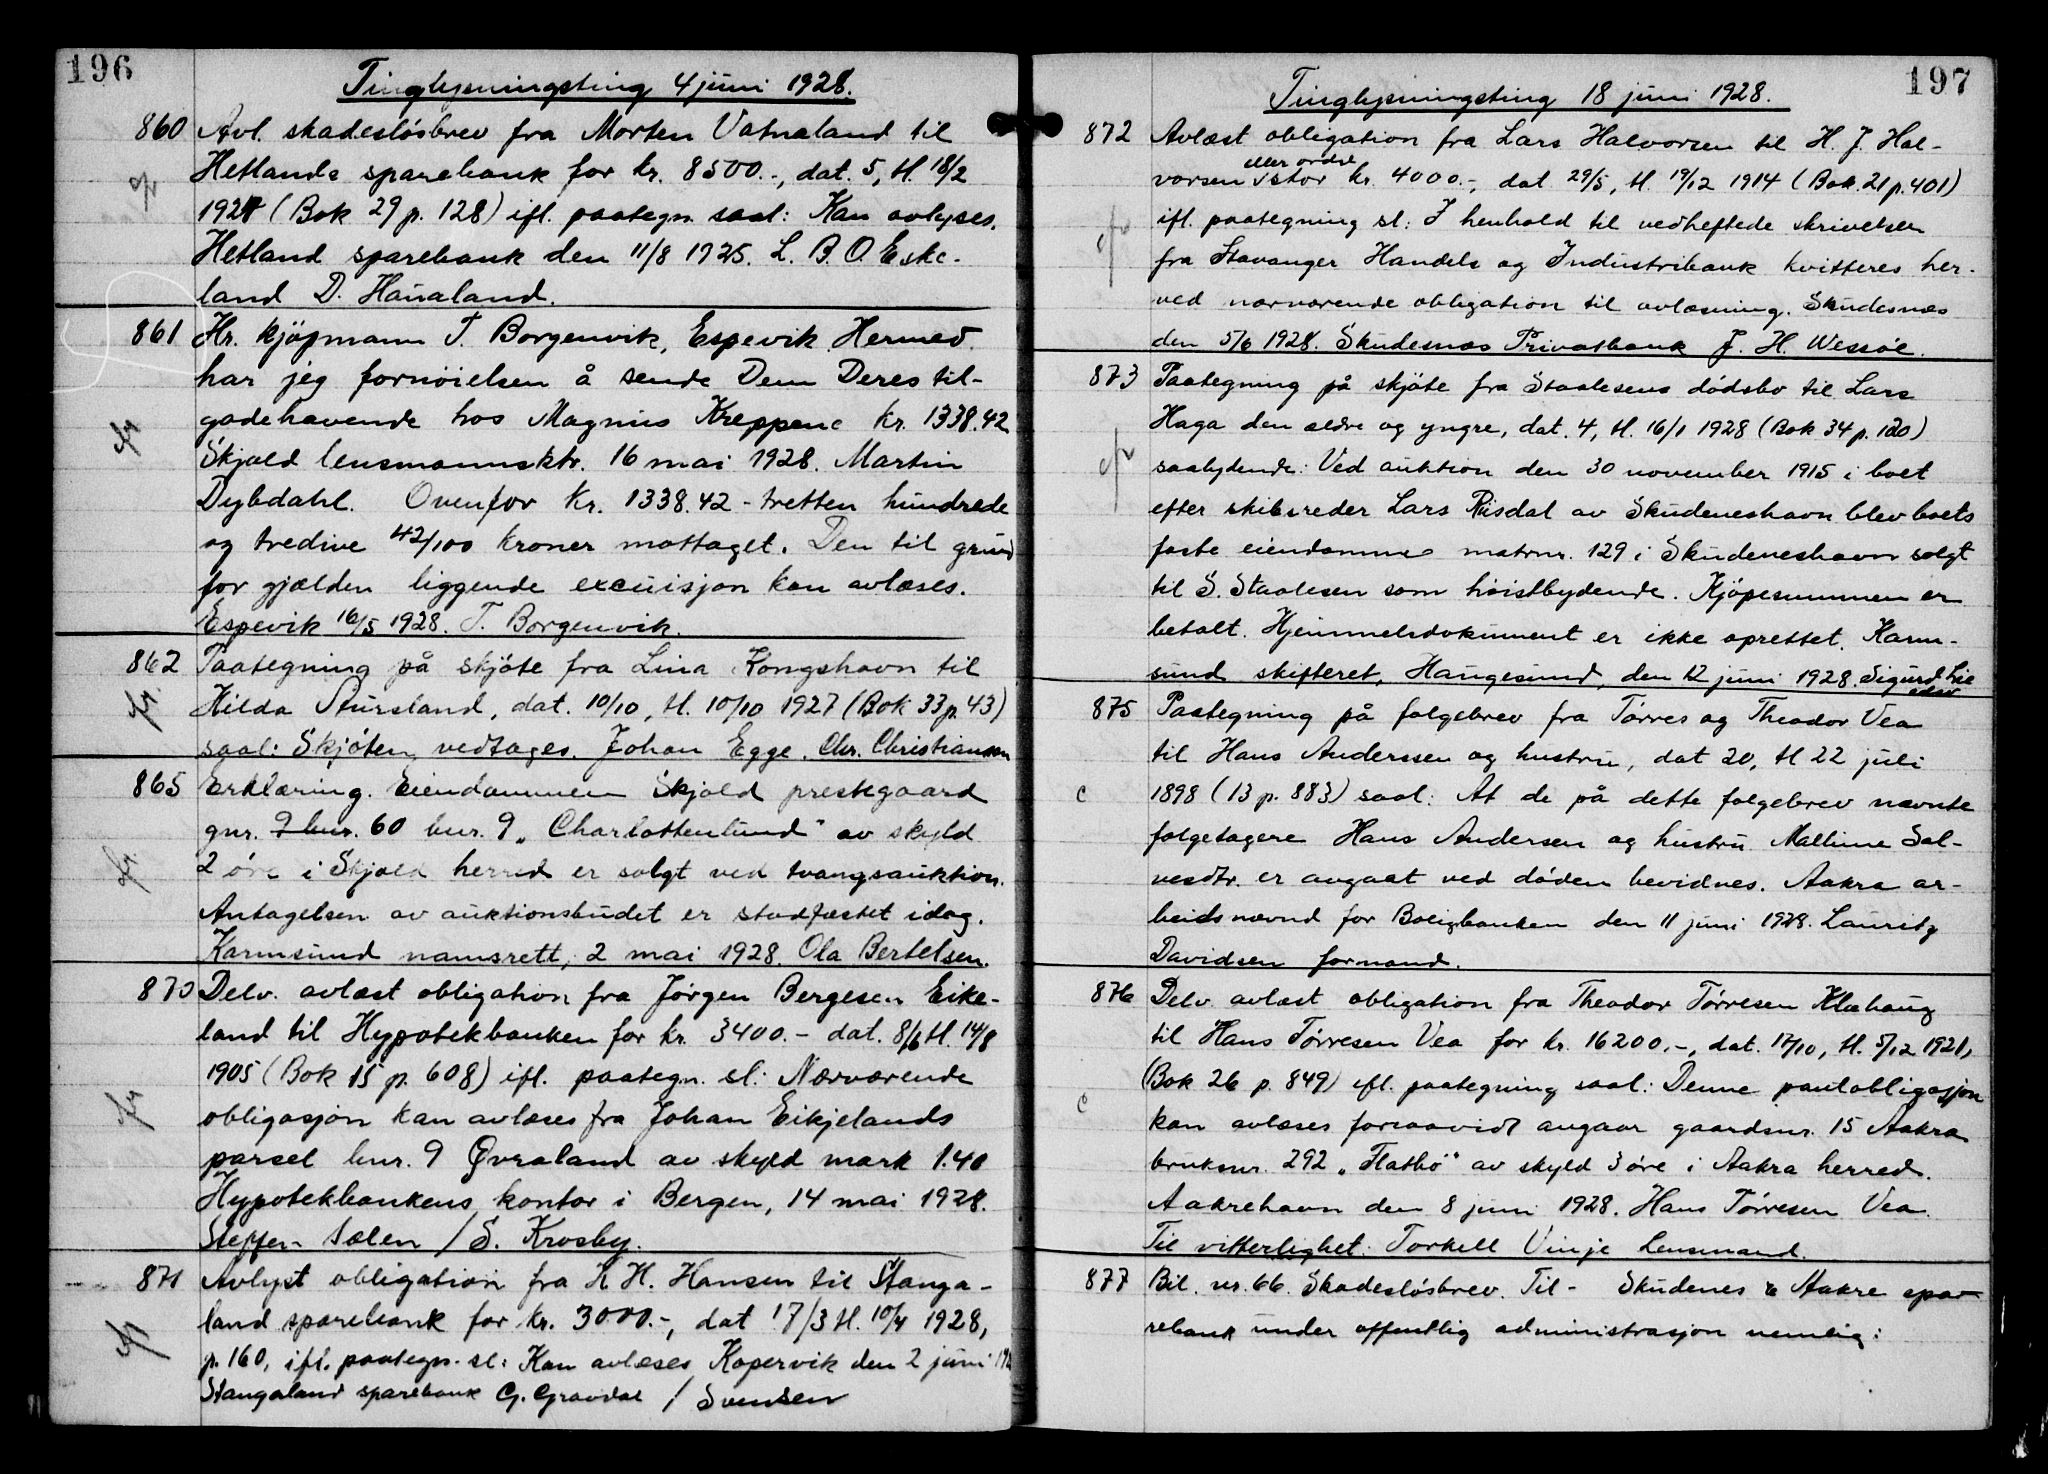 196
Tinglysningsting 4 juni 1928.
860 Avl. skadesløsbrev fra Morten Vatnaland til
Hetlands sparebank for kr. 8500.-, dat. 5, tl. 18/2
1924 (Bok 29 p. 128) ifl. paategn. saal: Kan avlyses.
Hetland sparebank den 11/8 1925. L. B. O. Eske-
land D. Haualand.
861 Hr. kjøpmann T. Borgenvik, Espevik. Hermed
har jeg fornøielsen å sende Dem Deres til-
godehavende hos Magnus Kreppene kr. 1338.42
Skjold lensmannsktr. 16 mai 1928. Martin
Dybdahl. Ovenfor kr. 1338.42 - tretten hundrede
og tredive 42/100 kroner mottaget. Den til grund
for gjælden liggende excuisjon kan avlæses.
Espevik 16/5 1928. T. Borgenvik.
862 Paategning på skjøte fra Lina Kongshavn til
Hilda Stursland, dat. 10/10, tl. 10/10 1927 (Bok 33 p. 43)
saal: Skjøten vedtages. Johan Egge. Chr. Christiansen
865 Erklæring. Eiendommen Skjold prestegaard
gnr. 9 bnr. 60 bnr. 9 „Charlottenlund" av skyld
2 øre i Skjold herred er solgt ved tvangsauktion.
Antagelsen av auktionsbudet er stadfæstet idag.
Karmsund namsrett, 2 mai 1928. Ola Bertelsen.
870 Delv. avlæst obligation fra Jørgen Bergesen Eike-
land til Hypotekbanken for kr. 3400.- dat. 8/6 tl. 14/8
1905 (Bok 15 p. 608) ifl. paategn. sl: Nærværende
obligasjon kan avlæses fra Johan Eikjelands
parsel bnr. 9 Øvraland av skyld mark 1.40
Hypotekbankens kontor i Bergen, 14 mai 1928.
Steffen Sælen / S. Krosby.
871 Avlyst obligation fra K H. Hansen til Stanga-
land sparebank for kr. 3000.-, dat 17/3 tl. 10/4 1928,
p. 160, ifl. paategn. sl: Kan avlæses Kopervik den 2 juni
Stangaland sparebank G. Gravdal / Svensen
197
Tinglysningsting 18 juni 1928.
872 Avlæst obligation fra Lars Halvorsen til H. J. Hal-
eller ordre
vorsen stor kr. 4000.-, dat 29/5, tl. 19/12 1914 (Bok. 21 p. 401)
ifl. paategning sl: I henhold til vedheftede skrivelsen
fra Stavanger Handels og Industribank kvitteres her-
ved nærværende obligation til avlæsning. Skudesnæs
den 5/6 1928. Skudesnæs Privatbank J. H. Wessøe.
873 Paategning på skjøte fra Staalesens dødsbo til Lars
Haga den eldre og yngre, dat. 4, tl. 16/1 1928 (Bok 34 p. 120)
saalydende: Ved auktion den 30 november 1915 i boet
efter skibsreder Lars Risdal av Skudeneshavn blev boets
faste eiendomme matrnr. 129 i Skudeneshavn solgt
til S. Staalesen som høistbydende. Kjøpesummen er
betalt. Hjemmelsdokument er ikke oprettet. Karm-
sund skifteret, Haugesund, den 12 juni 1928. Sigurd Lie
edsv
875 Paategning på følgebrev fra Tørres og Theodor Vea
til Hans Anderssen og hustru, dat 20, tl 22 juli
1898 (13 p. 883) saal: At de på dette følgebrev nævnte
følgetagere Hans Andersen og hustru Malline Sal-
vesdtr. er avgaat ved døden bevidnes. Aakra ar-
beidsnævnd for Boligbanken den 11 juni 1928. Lauritz
Davidsen formand.
876 Delv. avlæst obligation fra Theodor Tørresen Klæhaug
til Hans Tørresen Vea for kr. 16200.-, dat. 17/10, tl. 5/12 1921,
(Bok 26 p. 849) ifl. paategning saal: Denne pantobligasjon
kan avlæses forsaavidt angaar gaardsnr. 15 Aakra
bruksnr. 292 „Flatbø" av skyld 3 øre i Aakra herred.
Aakrehavn den 8 juni 1928. Hans Tørresen Vea.
Til vitterlighet: Torkell Vinje Lensmand.
877 Bil. nr. 66. Skadesløsbrev. Til - Skudenes & Aakre spa-
rebank under offentlig administrasjon nemlig: